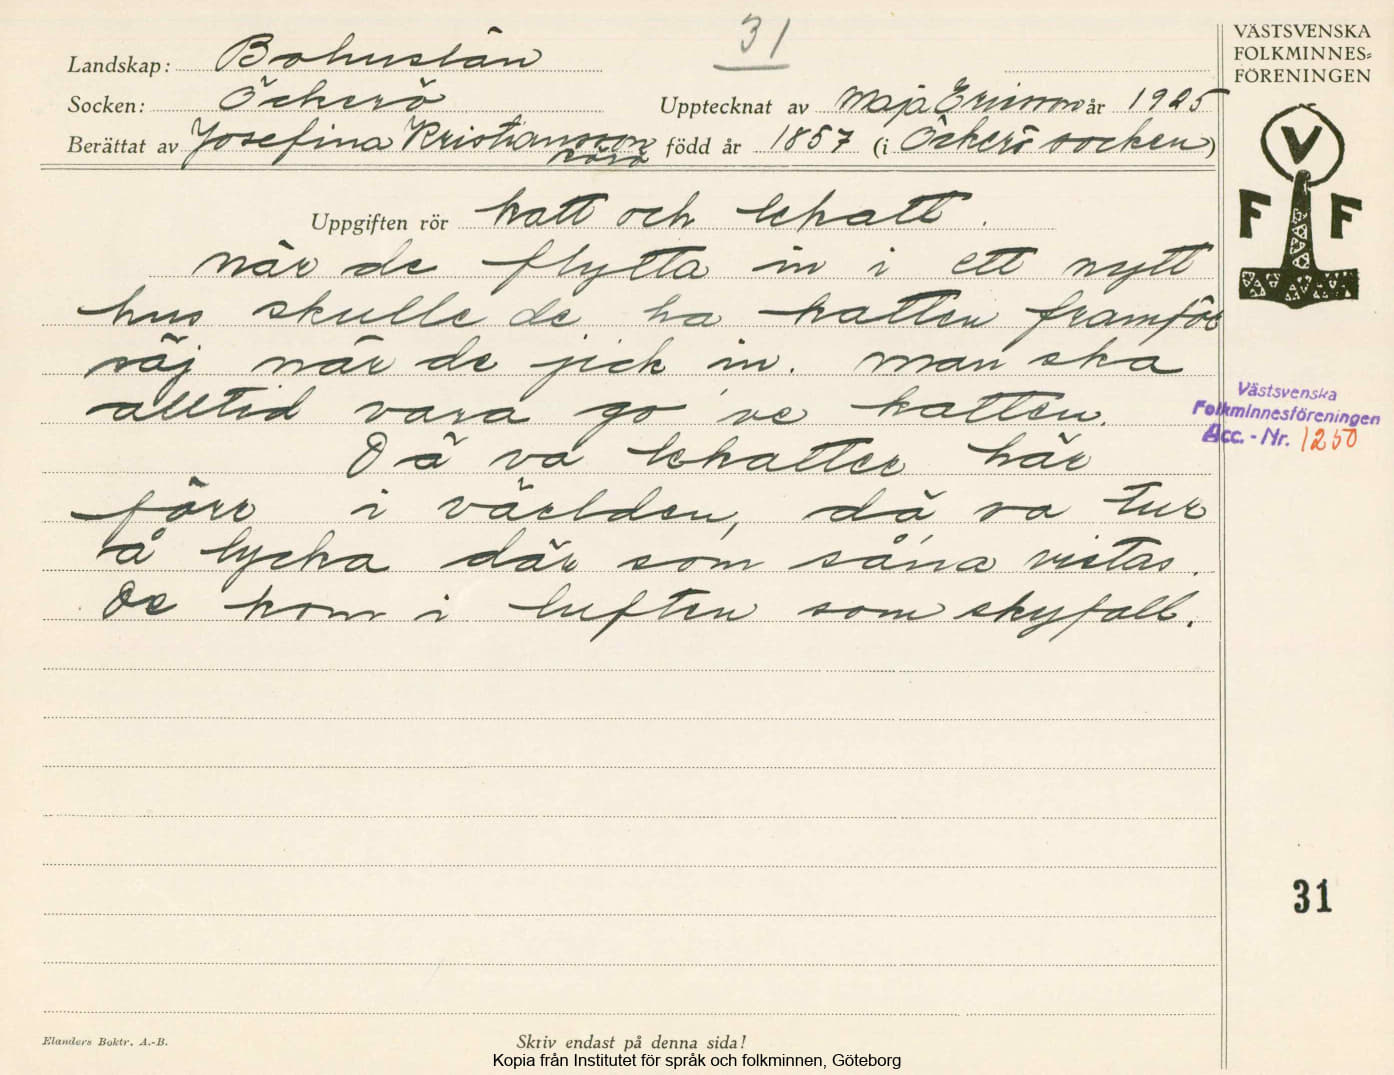 31
Landskap: Bohuslän
Socken: Öckerö
Upptecknat av Maja Ericson år 1925
Berättat av Josefina Kristiansson född år 1857 (i Öckerö socken)
Kärö
Uppgiften rör katt och lekatt.
När de flytta in i ett nytt
hus skulle de ha katten framför
säj när de jick in. Man ska
alltid vara go ve katten.
Dä va lekatter här
förr i världen, då va tur
å lycka där som såna vistas.
De kom i luften som skyfall.
VÄSTSVENSKA
FOLKMINNES-
FÖRENINGEN
V
F F
Västsvenska
Folkminnesföreningen
Acc.-Nr. 1250
31
Elanders Boktr. A.-B.
Skriv endast på denna sida!
Kopia från Institutet för språk och folkminnen, Göteborg